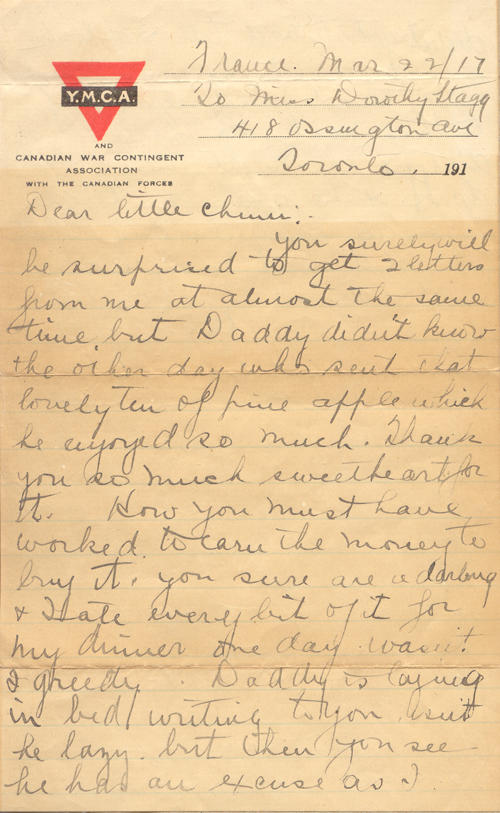 France. Mar 22/17
To Miss Dorothy Stagg
418 Ossington Ave
Toronto, 191
Y.M.C.A.
AND
CANADIAN WAR CONTINGENT
ASSOCIATION
WITH THE CANADIAN FORCES
Dear little chum:-
You surely will
be surprised to get 2 letters
from me at almost the same
time, but Daddy didn't know
the other day who sent that
lovely tin of pine apple which
he enjoyed so much. Thank
you so much sweetheart for
it. How you must have
worked to earn the money to
buy it. you sure are a darling
& I ate every bit of it for
my dinner one day wasn't
I greedy. Daddy is laying
in bed writing to you, isn't
he lazy. but then you see
he has an excuse as I